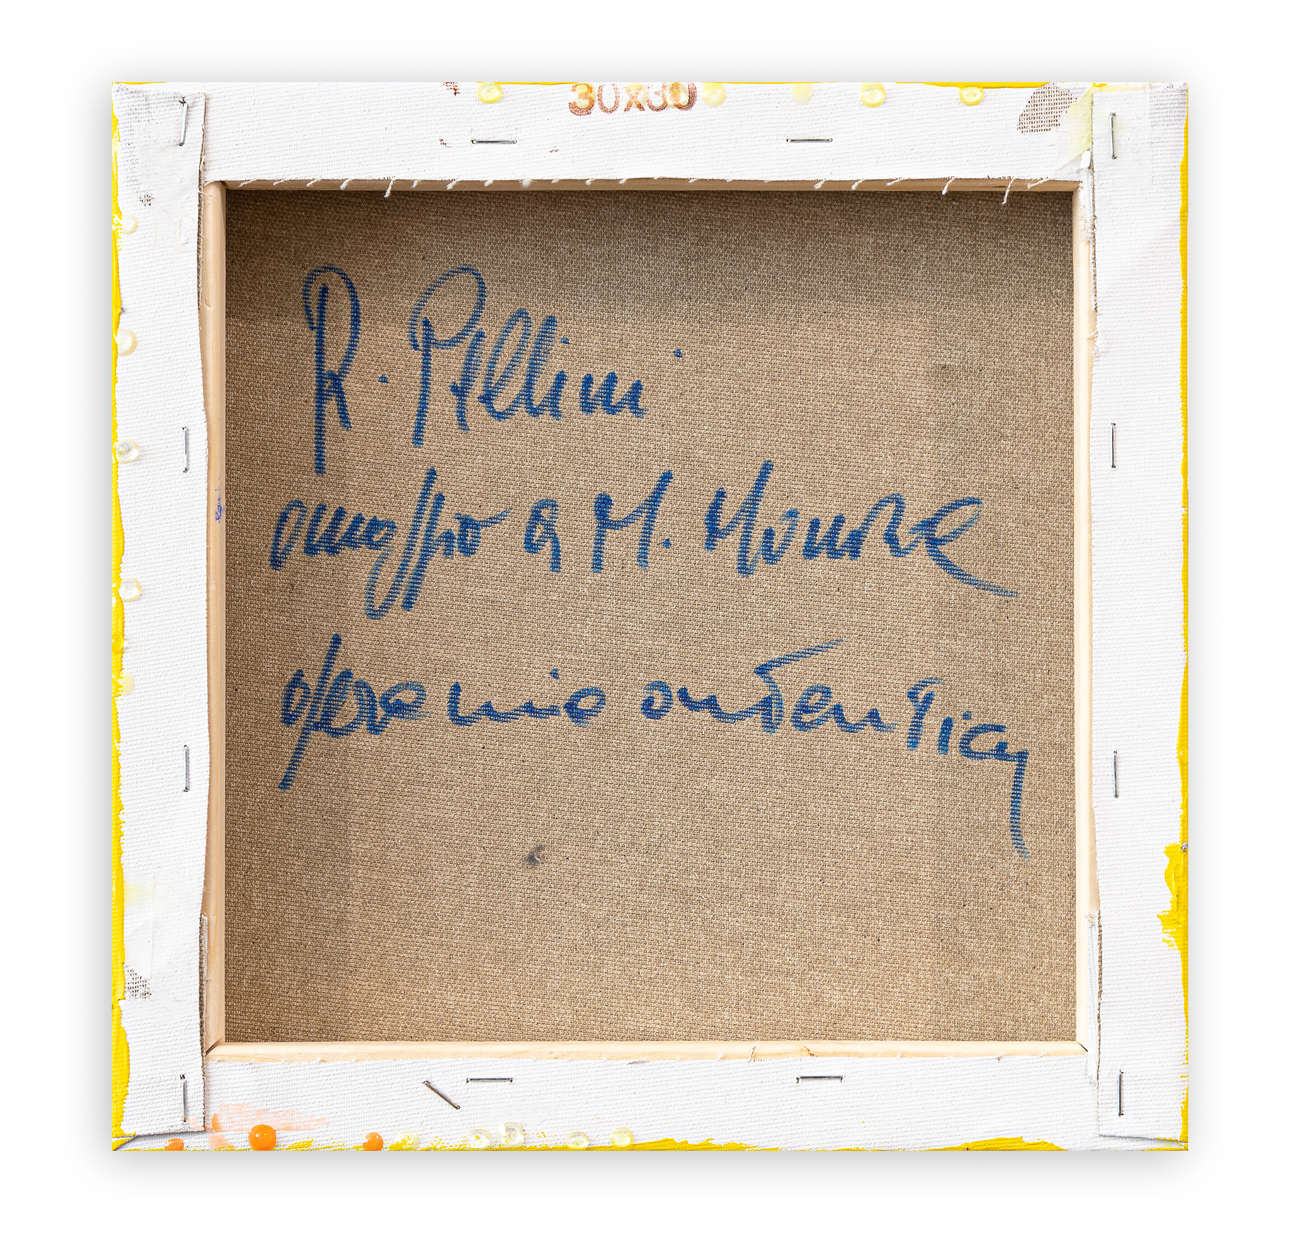 30x30
R. Pellini
omaggio a M. Monroe
opera mia autentica